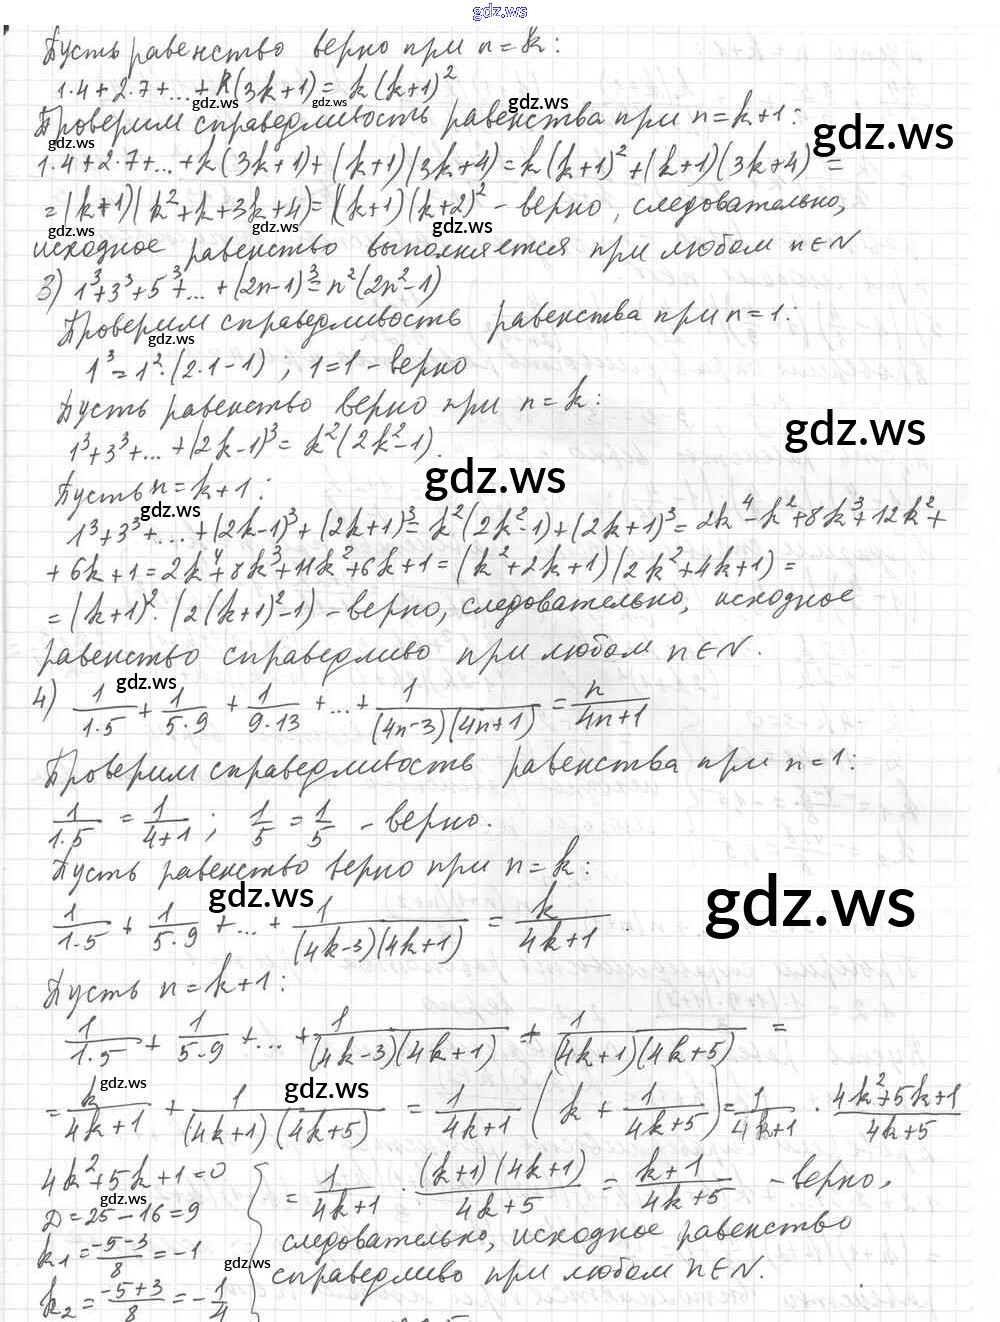 gdz.ws
Пусть равенство верно при n=k:
1·4+2·7+...+k(3k+1)=k(k+1)²
gdz.ws gdz.ws gdz.ws
Проверим справедливость равенства при n=k+1:
gdz.ws gdz.ws
1·4+2·7+...+k(3k+1)+(k+1)(3k+4)=k(k+1)²+(k+1)(3k+4)=
=(k+1)(k²+k+3k+4)=(k+1)(k+2)² - верно, следовательно,
gdz.ws gdz.ws gdz.ws
исходное равенство выполняется при любом n∈N
3) 1³+3³+5³+...+(2n-1)³=n²(2n²-1)
Проверим справедливость равенства при n=1:
gdz.ws
1³=1²·(2·1-1); 1=1 - верно
Пусть равенство верно при n=k:
gdz.ws
1³+3³+...+(2k-1)³=k²(2k²-1).
gdz.ws
Пусть n=k+1:
gdz.ws
1³+3³+...+(2k-1)³+(2k+1)³=k²(2k²-1)+(2k+1)³=2k⁴-k²+8k³+12k²+
+6k+1=2k⁴+8k³+11k²+6k+1=(k²+2k+1)(2k²+4k+1)=
=(k+1)²·(2(k+1)²-1) - верно, следовательно, исходное
равенство справедливо при любом n∈N.
gdz.ws
4) 1/(1·5)+1/(5·9)+1/(9·13)+...+1/((4n-3)(4n+1))=n/(4n+1)
Проверим справедливость равенства при n=1:
1/(1·5)=1/(4+1); 1/5=1/5 - верно.
Пусть равенство верно при n=k:
gdz.ws gdz.ws
1/(1·5)+1/(5·9)+...+1/((4k-3)(4k+1))=k/(4k+1).
Пусть n=k+1:
1/(1·5)+1/(5·9)+...+1/((4k-3)(4k+1))+1/((4k+1)(4k+5))=
gdz.ws gdz.ws
=k/(4k+1)+1/((4k+1)(4k+5))=1/(4k+1)(k+1/(4k+5))=1/(4k+1)·(4k²+5k+1)/(4k+5)
4k²+5k+1=0
gdz.ws
D=25-16=9
k₁=(-5-3)/8=-1
k₂=(-5+3)/8=-1/4
=1/(4k+1)·((k+1)(4k+1))/(4k+5)=(k+1)/(4k+5) - верно,
следовательно, исходное равенство
gdz.ws
справедливо при любом n∈N.